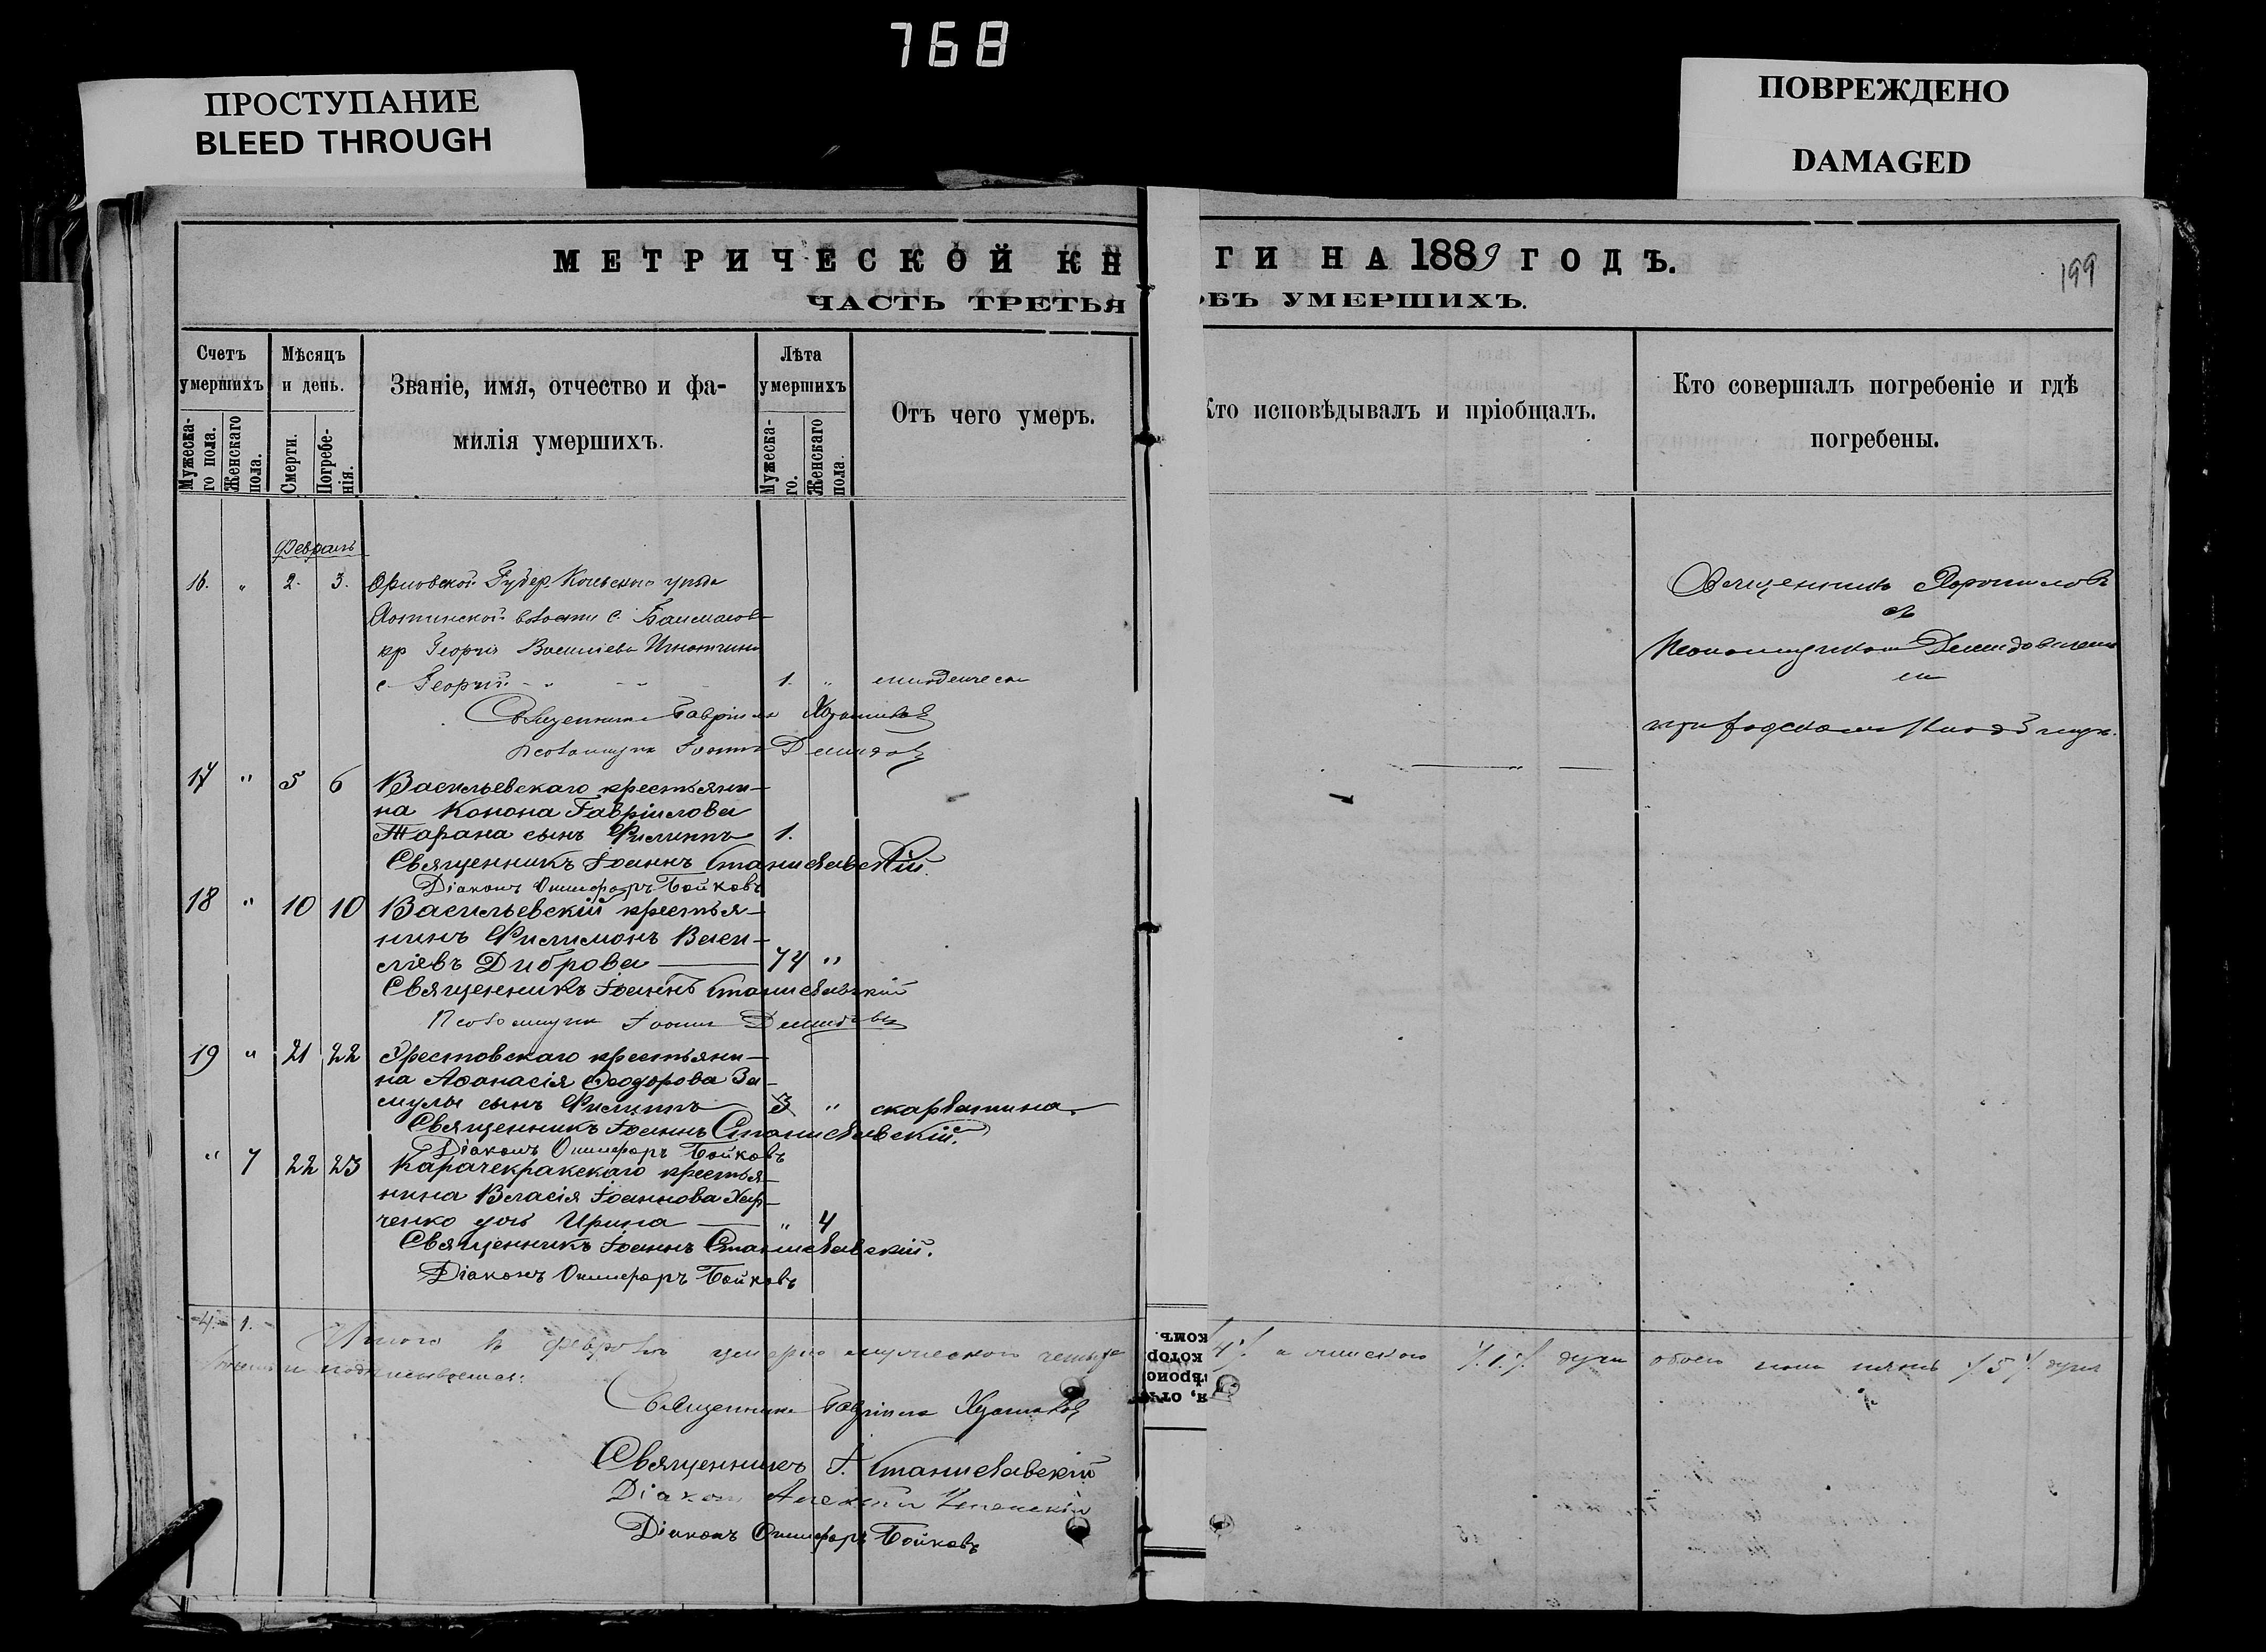 768
ПРОСТУПАНИЕ
BLEED THROUGH
ПОВРЕЖДЕНО
DAMAGED
МЕТРИЧЕСКОЙ КН ГИ НА 1889 ГОДЪ.
199
ЧАСТЬ ТРЕТЬЯ ОБЪ УМЕРШИХЪ.
Счетъ умершихъ
Мужеска-го пола.
Женскаго пола.
Мѣсяцъ и день.
Смерти.
Погребе-нія.
Званіе, имя, отчество и фа-
милія умершихъ.
Лѣта умершихъ
Мужеска-го.
Женскаго пола.
Отъ чего умеръ.
Кто исповѣдывалъ и пріобщалъ.
Кто совершалъ погребеніе и гдѣ
погребены.
Февраль
16. " 2. 3. Орловской Губер уѣзда Священникъ
с.
кр Георгія Василіева
с Георгій 1. "
Священникъ Гавріилъ
Псаломщикъ Іоаннъ Демидовъ
17 " 5 6 Васильевскаго крестьяни-
на Конона Гавріилова
Тарана сынъ Филиппъ 1.
Священникъ Іоаннъ Станиславскій.
Діаконъ Онисифоръ Бойковъ
18 " 10 10 Васильевскій крестья-
нинъ Филимонъ Васи-
ліевъ Диброва 74 "
Священникъ Іоаннъ Станиславскій
Псаломщикъ Іоаннъ Демидовъ
19 " 21 22 крестьяни-
на Аѳанасія Ѳеодорова За-
мулы сынъ Филиппъ 3 " скарлатина.
Священникъ Іоаннъ Станиславскій.
Діаконъ Онисифоръ Бойковъ
" 7 22 23 Карачекракскаго крестья-
нина Власія Іоаннова Хар-
ченко дочь Ирина " 4
Священникъ Іоаннъ Станиславскій.
Діаконъ Онисифоръ Бойковъ
4. 1.
Итого въ февралѣ умерло мужескаго четыре 4 и женскаго 1. душа обоего пола пять 5 душъ
подписываемся:
Священникъ Гавріилъ
Священникъ І. Станиславскій
Діаконъ Алексій
Діаконъ Онисифоръ Бойковъ